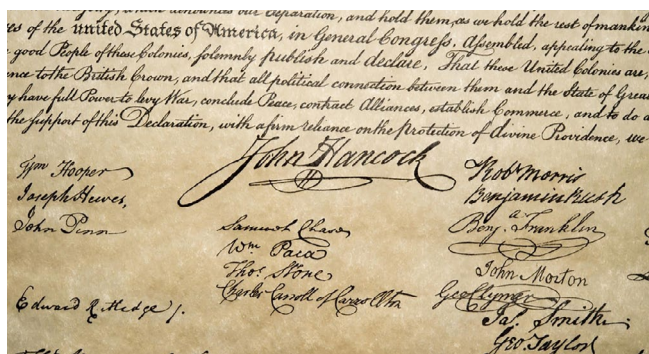 which denounces our Separation, and hold them, as we hold the rest of mankin
es of the united States of America, in General Congress, Assembled, appealing to the
good People of these Colonies, solemnly publish and declare, That these United Colonies are,
nce to the British Crown, and that all political connection between them and the State of Grea
y have full Power to levy War, conclude Peace, contract Alliances, establish Commerce, and to do a
the support of this Declaration, with a firm reliance on the Protection of divine Providence, we
John Hancock
Wm Hooper
Joseph Hewes,
John Penn
Edward Rutledge /.
Samuel Chase
Wm. Paca
Thos. Stone
Charles Carroll of Carrollton
Robt Morris
Benjamin Rush
Benja. Franklin
John Morton
Geo Clymer
Jas. Smith
Geo. Taylor